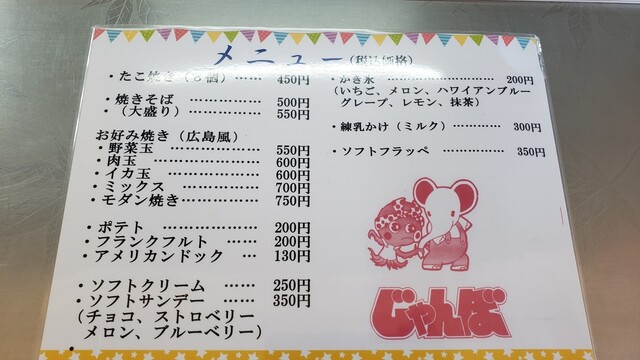 メニュー（税込価格）
・たこ焼き（８個）…… 450円
・焼きそば …………… 500円
・（大盛り）…………… 550円
お好み焼き（広島風）
・野菜玉 ……………… 550円
・肉玉 ……………… 600円
・イカ玉 ……………… 600円
・ミックス ………… 700円
・モダン焼き ………… 750円
・ポテト ……………… 200円
・フランクフルト …… 200円
・アメリカンドック … 130円
・ソフトクリーム …… 250円
・ソフトサンデー …… 350円
（チョコ、ストロベリー
メロン、ブルーベリー）
・かき氷 …………………… 200円
（いちご、メロン、ハワイアンブルー
グレープ、レモン、抹茶）
・練乳かけ（ミルク）………… 300円
・ソフトフラッペ …………… 350円
じゃんぼ